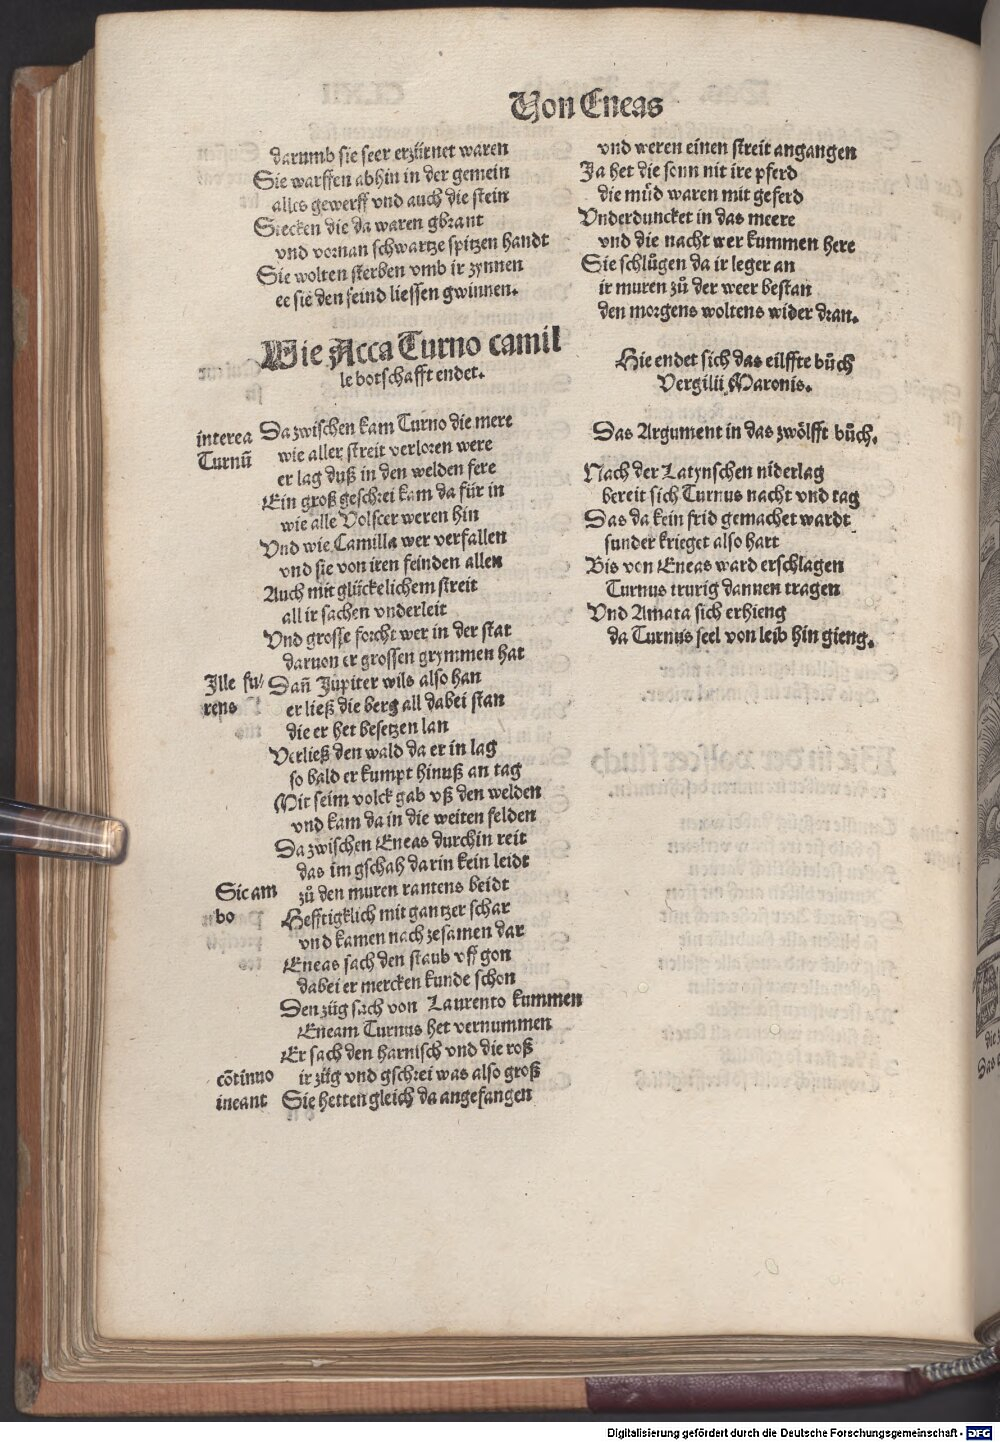 Von Eneas
darumb sie seer erzürnet waren
Sie warffen abhin in der gemein
alles gewerff vnd auch die stein
Stecken die da waren gbrant
vnd vornan schwartze spitzen handt
Sie wolten sterben vmb ir zynnen
ee sie den feind liessen gwinnen.
Wie Acca Turno camil
le botschafft endet.
interea Da zwischen kam Turno die mere
Turnū wie aller streit verloren were
er lag duß in den welden fere
Ein groß geschrei kam da für in
wie alle Volscer weren hin
Vnd wie Camilla wer verfallen
vnd sie von iren feinden allen
Auch mit glückelichem streit
all ir sachen vnderleit
Vnd grosse forcht wer in der stat
daruon er grossen grymmen hat
Ille fu/ Dañ Jupiter wils also han
rens er ließ die berg all dabei stan
die er het besetzen lan
Verließ den wald da er in lag
so bald er kumpt hinuß an tag
Mit seim volck gab vß den welden
vnd kam da in die weiten felden
Da zwischen Eneas durchin reit
das im gschah darin kein leidt
Sic am zů den muren rantens beidt
bo Hefftigklich mit gantzer schar
vnd kamen nach zesamen dar
Eneas sach den staub vff gon
dabei er mercken kunde schon
Den züg sach von Laurento kummen
Eneam Turnus het vernummen
Er sach den harnisch vnd die roß
cōtinuo ir züg vnd gschrei was also groß
ineant Sie hetten gleich da angefangen
vnd weren einen streit angangen
Ja het die sonn nit ire pferd
die müd waren mit geferd
Vnderduncket in das meere
vnd die nacht wer kummen here
Sie schlůgen da ir leger an
ir muren zů der weer bestan
den morgens woltens wider dran.
Hie endet sich das eilffte bůch
Vergilii Maronis.
Das Argument in das zwölfft bůch.
Nach der Latynschen niderlag
bereit sich Turnus nacht vnd tag
Das da kein frid gemachet wardt
sunder krieget also hart
Bis von Eneas ward erschlagen
Turnus trurig dannen tragen
Vnd Amata sich erhieng
da Turnus seel von leib hin gieng.
Digitalisierung gefördert durch die Deutsche Forschungsgemeinschaft - DFG